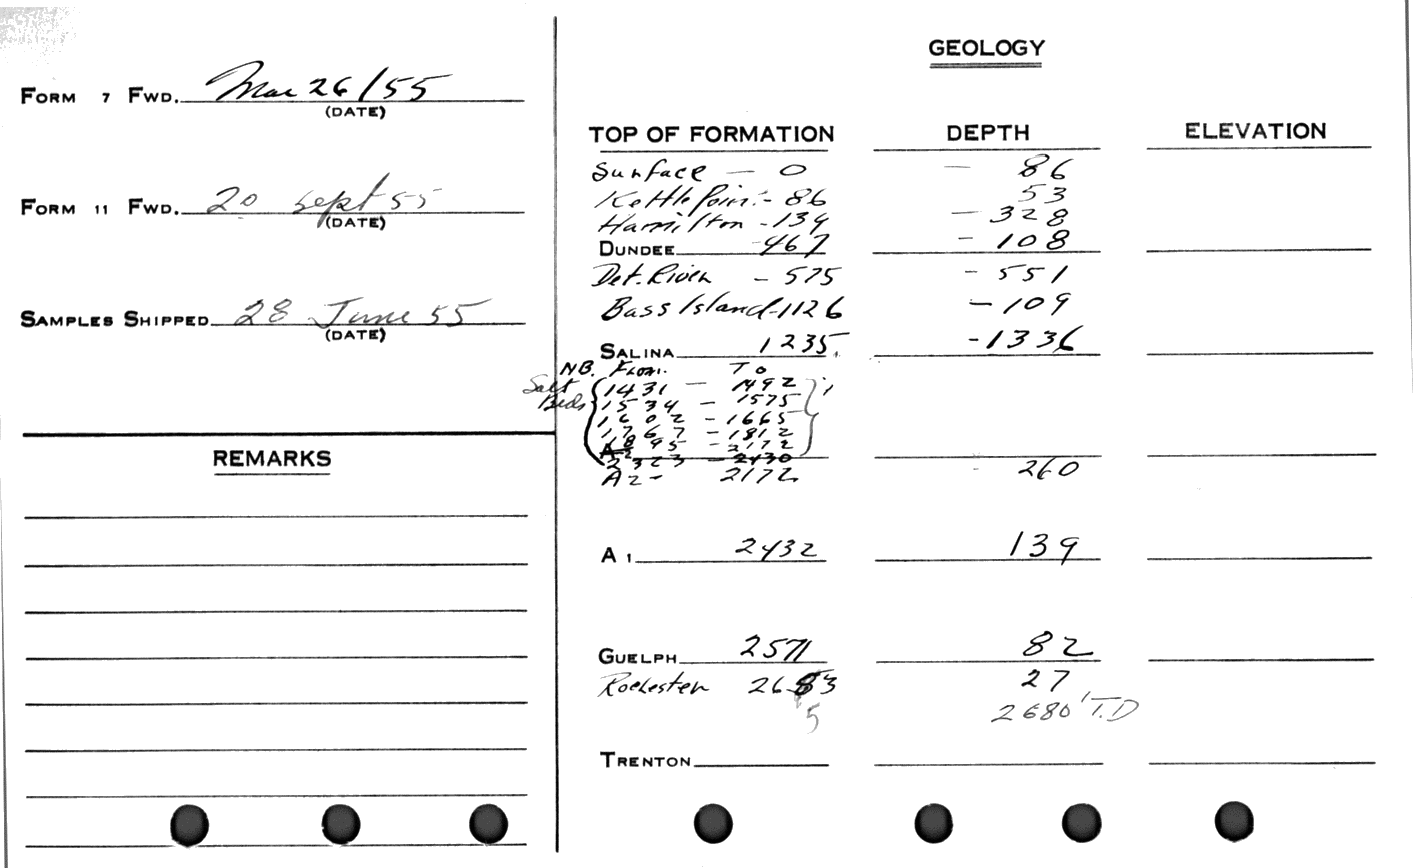 FORM 7 FWD. Mar 26/55
(DATE)
FORM 11 FWD. 20 Sept 55
(DATE)
SAMPLES SHIPPED 28 June 55
(DATE)
REMARKS
GEOLOGY
TOP OF FORMATION DEPTH ELEVATION
Surface — 0 — 86
Kettle Poin. - 86 53
Hamilton - 139 — 328
DUNDEE - 467 - 108
Det. River - 575 - 551
Bass Island - 1126 - 109
SALINA 1235 - 1336
NB. From. To
Salt Beds
1431 — 1492
1534 - 1575
1602 - 1665
1767 - 1812
1895 - 2172
2323 - 2430
A2 - 2172 - 260
A 1 2432 139
GUELPH 2571 82
Rochester 2653 27
5 2680' T.D
TRENTON